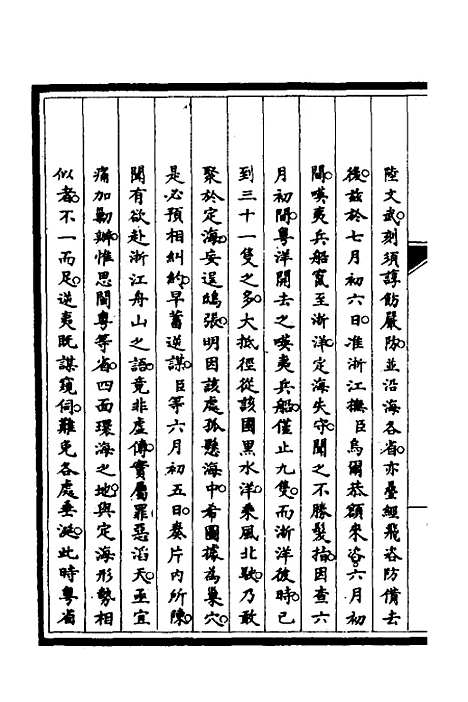 陸文武刻須諄飭嚴防並沿海各省亦疊經飛咨防備去
後茲於七月初六日准浙江撫臣烏爾恭額來咨六月初
間嘆夷兵船竄至浙洋定海失守聞之不勝髮指因查六
月初間粵洋開去之嘆夷兵船僅止九隻而浙洋彼時已
到三十一隻之多大抵徑從該國黑水洋乘風北駛乃敢
聚於定海妄逞鴟張明因該處孤懸海中希圖據為巢穴
是必預相糾約早蓄逆謀臣等六月初五日奏片內所陳
聞有欲赴浙江舟山之語竟非虛傳實屬罪惡滔天亟宜
痛加勦辦惟思閩粵等省四面環海之地與定海形勢相
似者不一而足逆夷既謀窺伺難免各處垂涎此時粵省